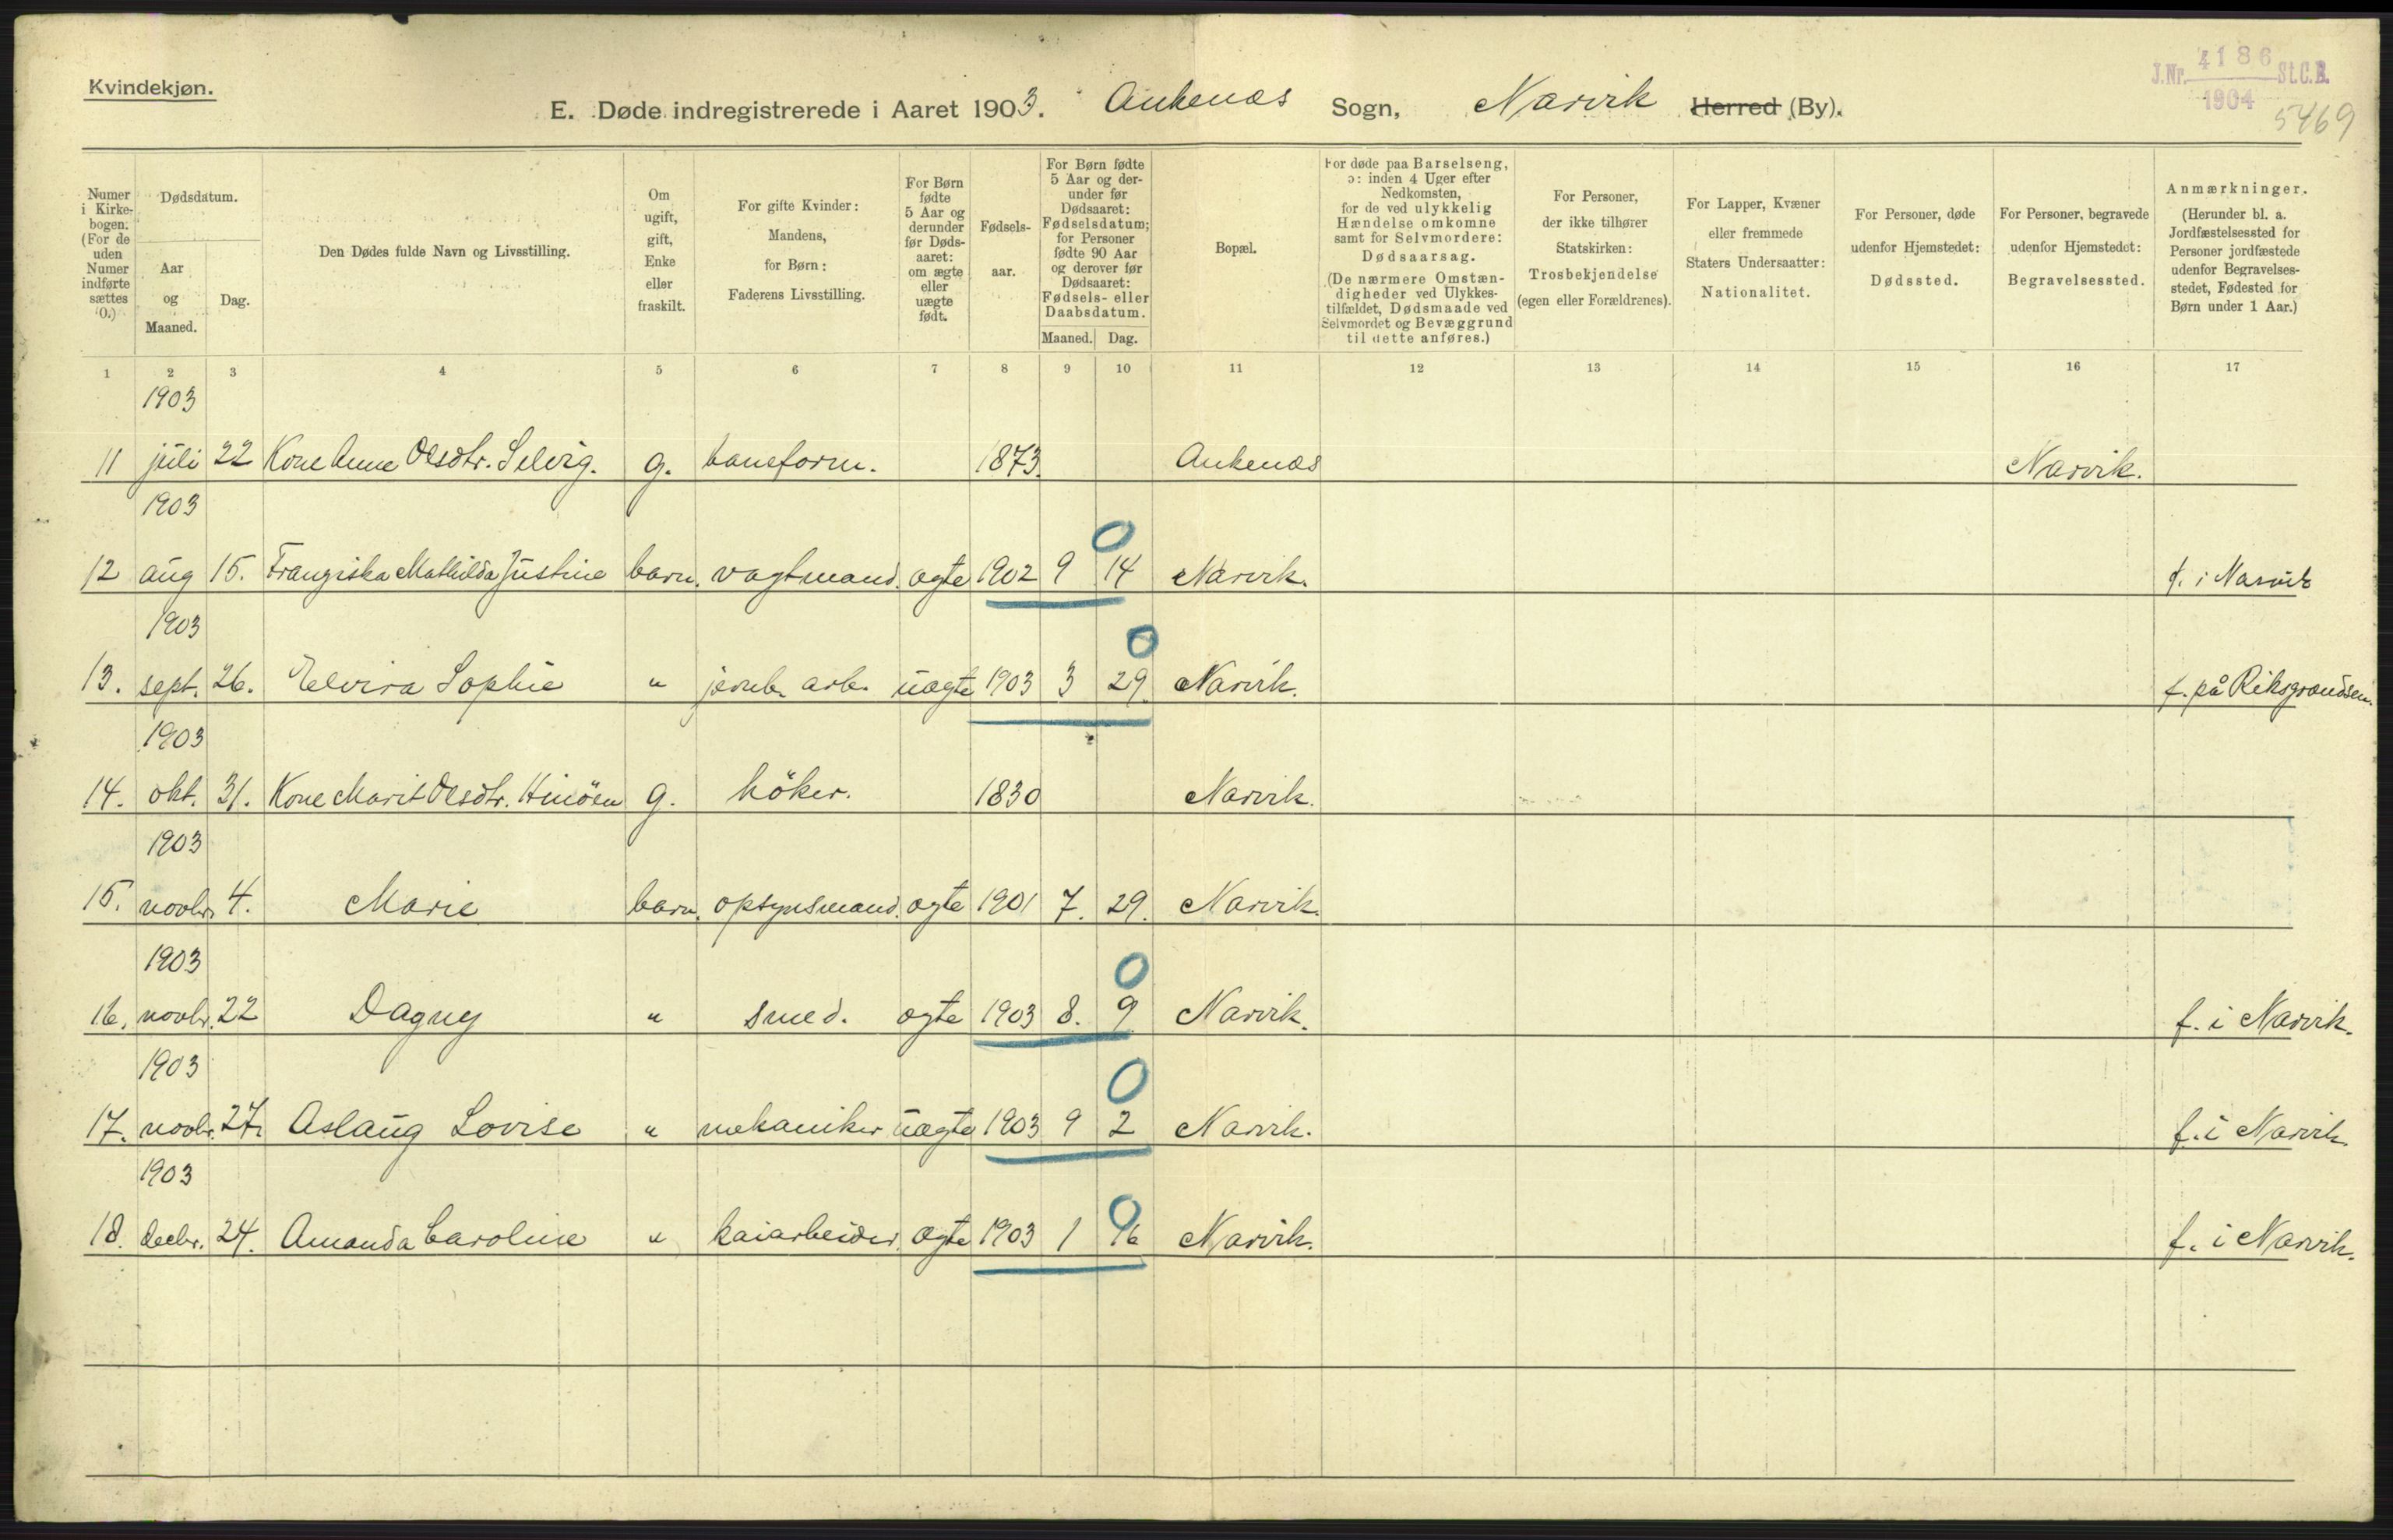 Kvindekjøn.
J.Nr. 4186 St.C.B.
1904
5469
E. Døde indregistrerede i Aaret 1903. Ankenæs Sogn, Narvik Herred (By).
Numer i Kirkebogen. (For de uden Numer indførte sættes 0.)
Dødsdatum.
Aar og Maaned.
Dag.
Den Dødes fulde Navn og Livsstilling.
Om ugift, gift, Enke eller fraskilt.
For gifte Kvinder: Mandens, for Børn: Faderens Livsstilling.
For Børn fødte 5 Aar og derunder før Dødsaaret: om ægte eller uægte født.
Fødselsaar.
For Børn fødte 5 Aar og derunder før Dødsaaret: Fødselsdatum; for Personer fødte 90 Aar og derover før Dødsaaret: Fødsels- eller Daabsdatum.
Maaned. Dag.
Bopæl.
For døde paa Barselseng, ɔ: inden 4 Uger efter Nedkomsten, for de ved ulykkelig Hændelse omkomne samt for Selvmordere: Dødsaarsag. (De nærmere Omstændigheder ved Ulykkestilfældet, Dødsmaade ved Selvmordet og Bevæggrund til dette anføres.)
For Personer, der ikke tilhører Statskirken: Trosbekjendelse (egen eller Forældrenes).
For Lapper, Kvæner eller fremmede Staters Undersaatter: Nationalitet.
For Personer, døde udenfor Hjemstedet: Dødssted.
For Personer, begravede udenfor Hjemstedet: Begravelsessted.
Anmærkninger. (Herunder bl. a. Jordfæstelsessted for Personer jordfæstede udenfor Begravelsesstedet, Fødested for Børn under 1 Aar.)
1 2 3 4 5 6 7 8 9 10 11 12 13 14 15 16 17
1903
11 juli 22 Kone Anne Olsdtr. Selvig. g. baneform. 1873. Ankenæs Narvik.
1903
0
12 aug 15. Franziska Mathilda Justine barn. vagtmand. ægte 1902 9 14 Narvik. f. i Narvik
1903
0
13. sept. 26. Elvira Sophie " jernb. arb. uægte 1903 3 29. Narvik. f. på Riksgrændsen.
1903
14. okt. 31. Kone Marit Olsdtr. g. höker. 1830 Narvik.
1903
15. novbr. 4. Marie barn. opsynsmand. ægte 1901 7. 29. Narvik.
1903
0
16. novbr. 22 Dagny " smed. ægte 1903 8. 9 Narvik. f. i Narvik.
1903
0
17. novbr. 27. Aslaug Lovise " mekaniker uægte 1903 9 2 Narvik. f. i Narvik.
1903
0
18. decbr. 24. Amanda Caroline " kaiarbeider. ægte 1903 1 16 Narvik. f. i Narvik.